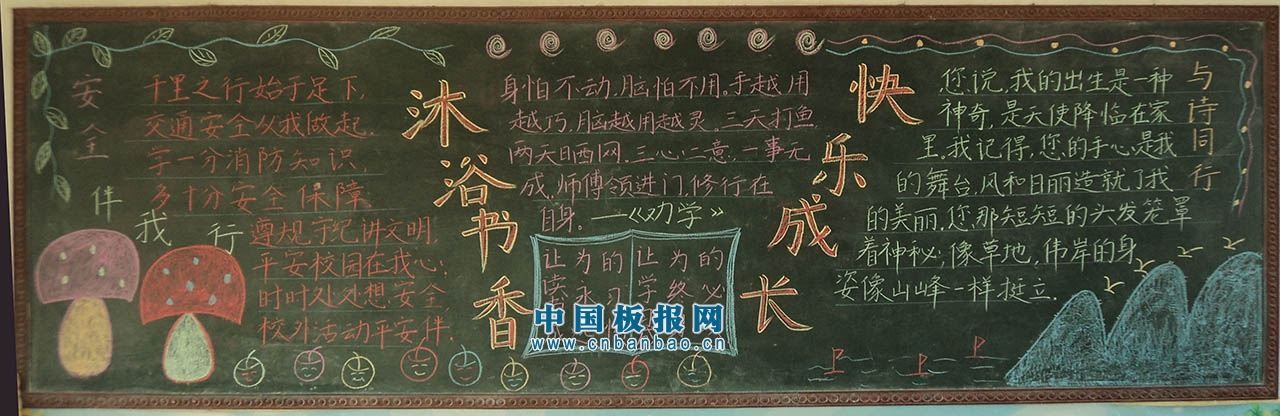 安全伴我行
千里之行始于足下,
交通安全从我做起.
学一分消防知识,
多十分安全保障
遵规守纪讲文明,
平安校园在我心;
时时处处想安全
校外活动平安伴.
沐浴书香
身怕不动.脑怕不用.手越用
越巧,脑越用越灵.三天打鱼,
两天晒网.三心二意,一事无
成.师傅领进门,修行在
自身.—《劝学》
让为的
学终必
中国板报网
www.cnbanbao.cn
快乐成长
与诗同行
您说,我的出生是一种
神奇,是天使降临在家
里.我记得,您的手心是我
的舞台,风和日丽造就了我
的美丽.您那短短的头发笼罩
着神秘;像草地,伟岸的身
姿像山峰一样挺立.